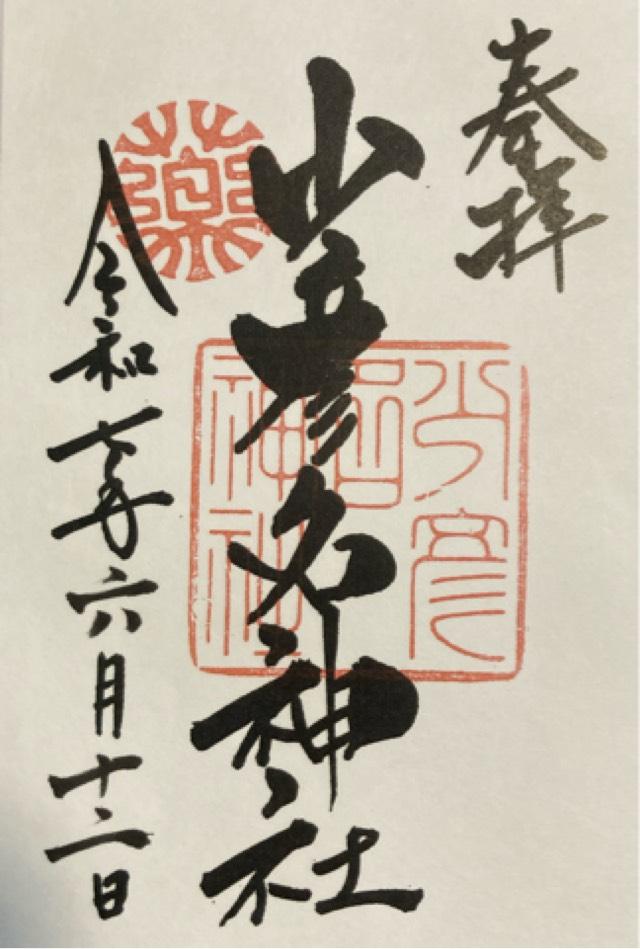 奉拝
少彦名神社
令和七年六月十二日
薬
少彦
名
神社